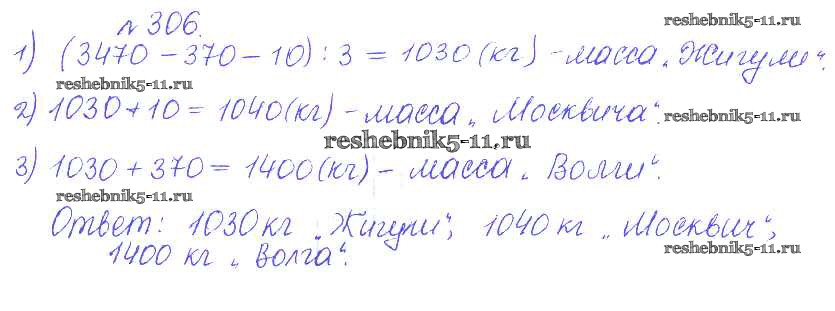 № 306.
reshebnik5-11.ru
1) (3470 - 370 - 10) : 3 = 1030 (кг) - масса „Жигули“.
reshebnik5-11.ru
2) 1030 + 10 = 1040 (кг) - масса „Москвича“.
reshebnik5-11.ru
reshebnik5-11.ru
3) 1030 + 370 = 1400 (кг) - масса „Волги“.
reshebnik5-11.ru
Ответ: 1030 кг „Жигули“, 1040 кг „Москвич“,
reshebnik5-11.ru
1400 кг „Волга“.